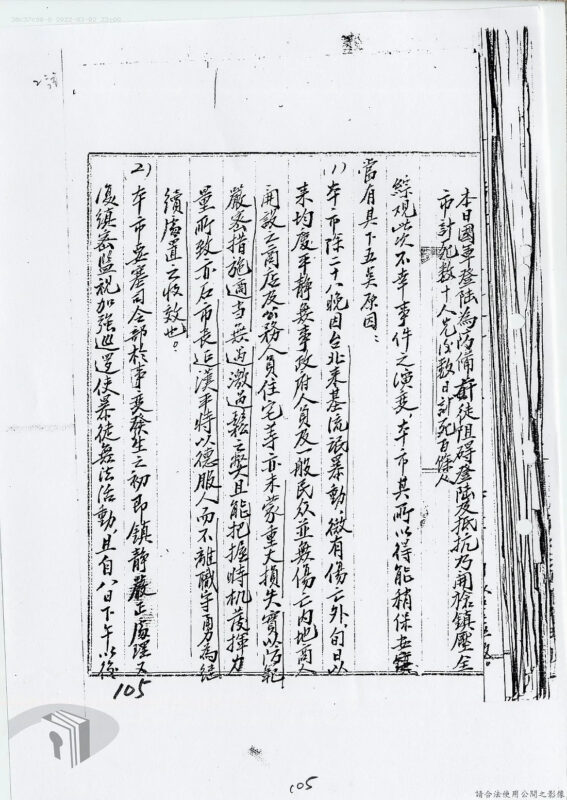 本日國軍登陸為防備奸徒阻碍登陸及抵抗乃開槍鎮壓全
市計死數十人先後數日計死百餘人
綜观此次不幸事件之演变本市其所以得能稍保安
當有具下五点原因：
1）本市除二十八晚因台北来基流氓暴動微有傷亡外旬日以
来均慶平静無事政府人員及一般民众並無傷亡内地商人
開設之商店及公務人員住宅等亦未蒙重大損失實以防範
嚴密措施適当無過激過鬆之弊且能把握時机發揮力
量所致亦石市長延漢平時以德服人而不離職守勇為継
續處置之收效也。
2）本市要塞司令部於事変發生之初即鎮静嚴正處理又
復縝密監視加強巡邏使暴徒無法活動且自八日下午以後
105
105
請合法使用公開之影像